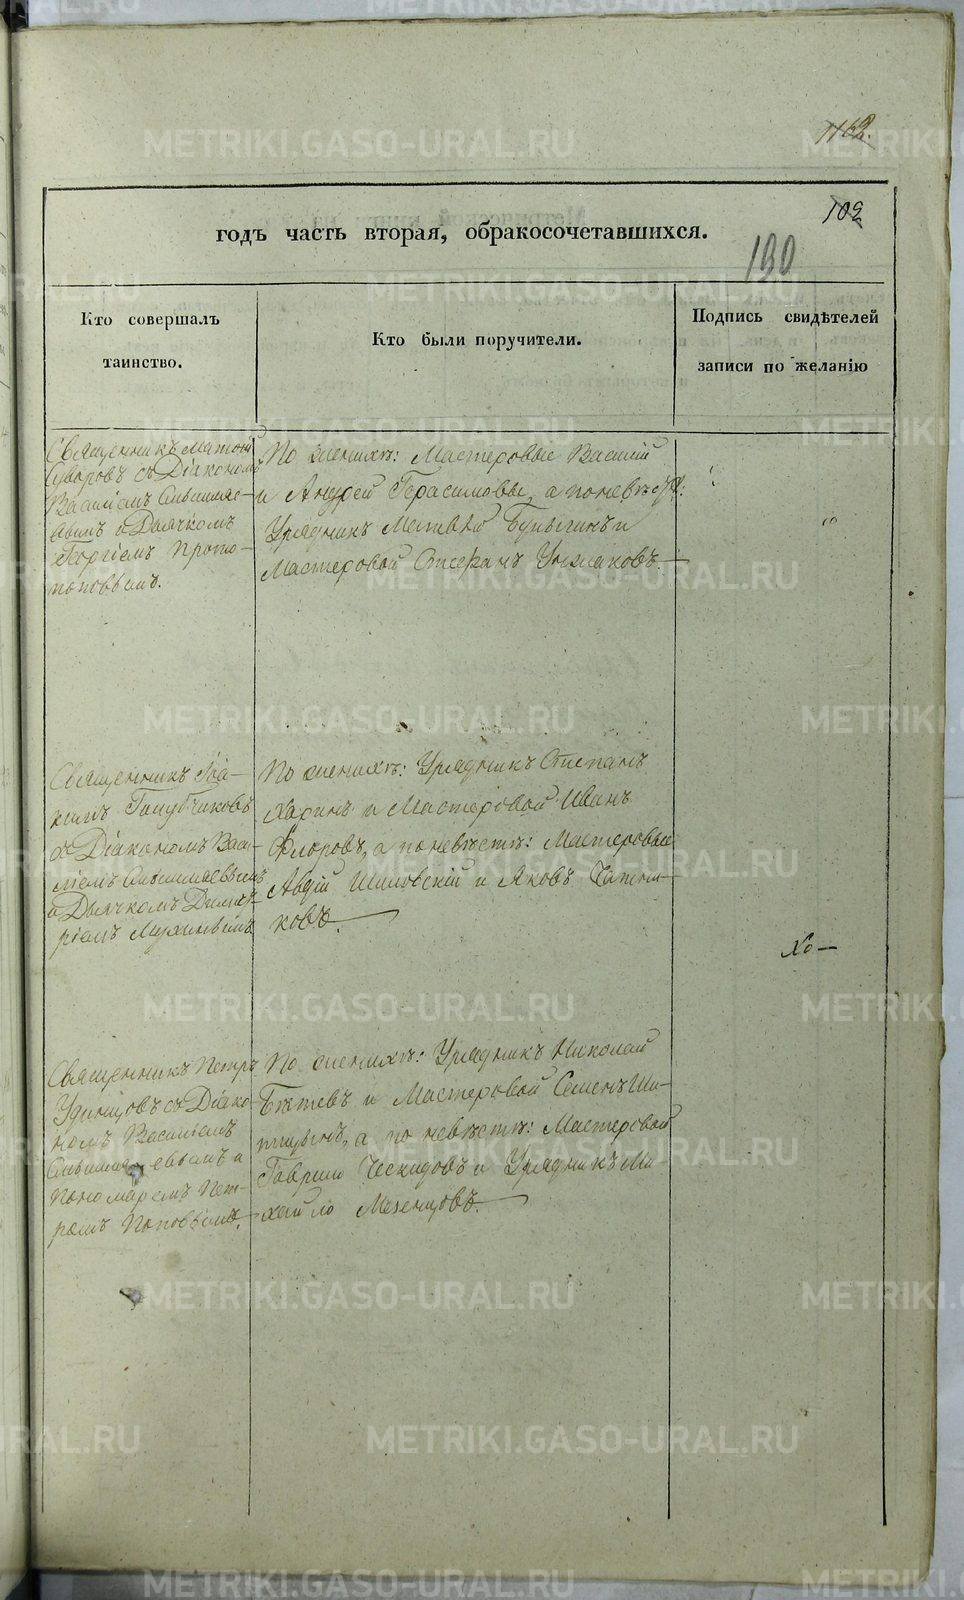 1162.
102
190
годъ часть вторая, обракосочетавшихся.
Кто совершалъ
таинство.
Кто были поручители.
Подпись свидѣтелей
записи по желанію
Священникъ Матфій
Суворовъ съ Діакономъ
Василіемъ
и Дьячкомъ
Георгіемъ Прото-
поповымъ.
По женихѣ: Мастеровые Василій
и Андрей Герасимовы, а по невѣстѣ:
Урядникъ Матвѣй и
Мастеровой Стефанъ
Священникъ Іоа-
кимъ Голубчиковъ
съ Діакономъ Васи-
ліемъ
и Дьячкомъ Димит-
ріемъ
По женихѣ: Урядникъ Степанъ
Харинъ и Мастеровой Иванъ
Флоровъ, а по невѣстѣ: Мастеровые
Авдій Шиловскій и Яковъ
ковъ.
Хо—
Священникъ Петръ
Удинцовъ съ Діако-
номъ Василіемъ
и
Пономаремъ Пет-
ромъ Поповымъ.
По женихѣ: Урядникъ Николай
и Мастеровой Семенъ Ши-
пицынъ, а по невѣстѣ: Мастеровой
Гаврило Ческидовъ и Урядникъ Ми-
хайло Мезенцовъ.
METRIKI.GASO-URAL.RU